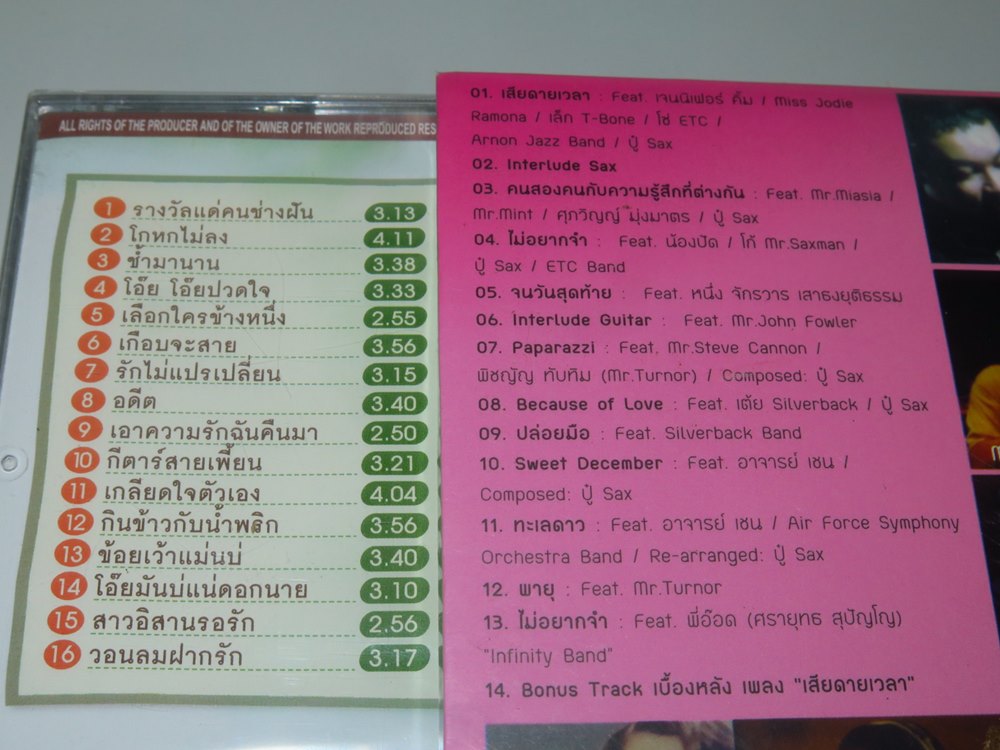 ALL RIGHTS OF THE PRODUCER AND OF THE OWNER OF THE WORK REPRODUCED RES
1 รางวัลแด่คนช่างฝัน 3.13
2 โกหกไม่ลง 4.11
3 ช้ำมานาน 3.38
4 โอ๊ย โอ๊ยปวดใจ 3.33
5 เลือกใครข้างหนึ่ง 2.55
6 เกือบจะสาย 3.56
7 รักไม่แปรเปลี่ยน 3.15
8 อดีต 3.40
9 เอาความรักฉันคืนมา 2.50
10 กีตาร์สายเพี้ยน 3.21
11 เกลียดใจตัวเอง 4.04
12 กินข้าวกับน้ำพริก 3.56
13 ข้อยเว้าแม่นบ่ 3.40
14 โอ๊ยมันบ่แน่ดอกนาย 3.10
15 สาวอิสานรอรัก 2.56
16 วอนลมฝากรัก 3.17
01. เสียดายเวลา : Feat. เจนนิเฟอร์ คิ้ม / Miss Jodie
Ramona / เล็ก T-Bone / โซ่ ETC /
Arnon Jazz Band / ปู๋ Sax
02. Interlude Sax
03. คนสองคนกับความรู้สึกที่ต่างกัน : Feat. Mr.Miasia /
Mr.Mint / ศุภวิญญ์ มุ่งมาตร / ปู๋ Sax
04. ไม่อยากจำ : Feat. น้องปัด / โก้ Mr.Saxman /
ปู๋ Sax / ETC Band
05. จนวันสุดท้าย : Feat. หนึ่ง จักรวาร เสาธงยุติธรรม
06. Interlude Guitar : Feat. Mr.John Fowler
07. Paparazzi : Feat. Mr.Steve Cannon /
พิชญัญ ทับทิม (Mr.Turnor) / Composed: ปู๋ Sax
08. Because of Love : Feat. เต้ย Silverback / ปู๋ Sax
09. ปล่อยมือ : Feat. Silverback Band
10. Sweet December : Feat. อาจารย์ เชน /
Composed: ปู๋ Sax
11. ทะเลดาว : Feat. อาจารย์ เชน / Air Force Symphony
Orchestra Band / Re-arranged: ปู๋ Sax
12. พายุ : Feat. Mr.Turnor
13. ไม่อยากจำ : Feat. พี่อ๊อด (ศรายุทธ สุปัญโญ)
"Infinity Band"
14. Bonus Track เบื้องหลัง เพลง "เสียดายเวลา"